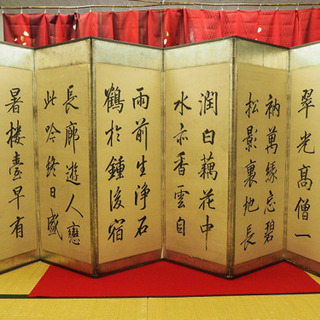 翠光高僧一
衲萬緣忘碧
松影裏地長
潤白藕花中
水亦香雲自
雨前生淨石
鶴於鍾後宿
長廊遊人戀
此吟終日盛
暑樓臺早有